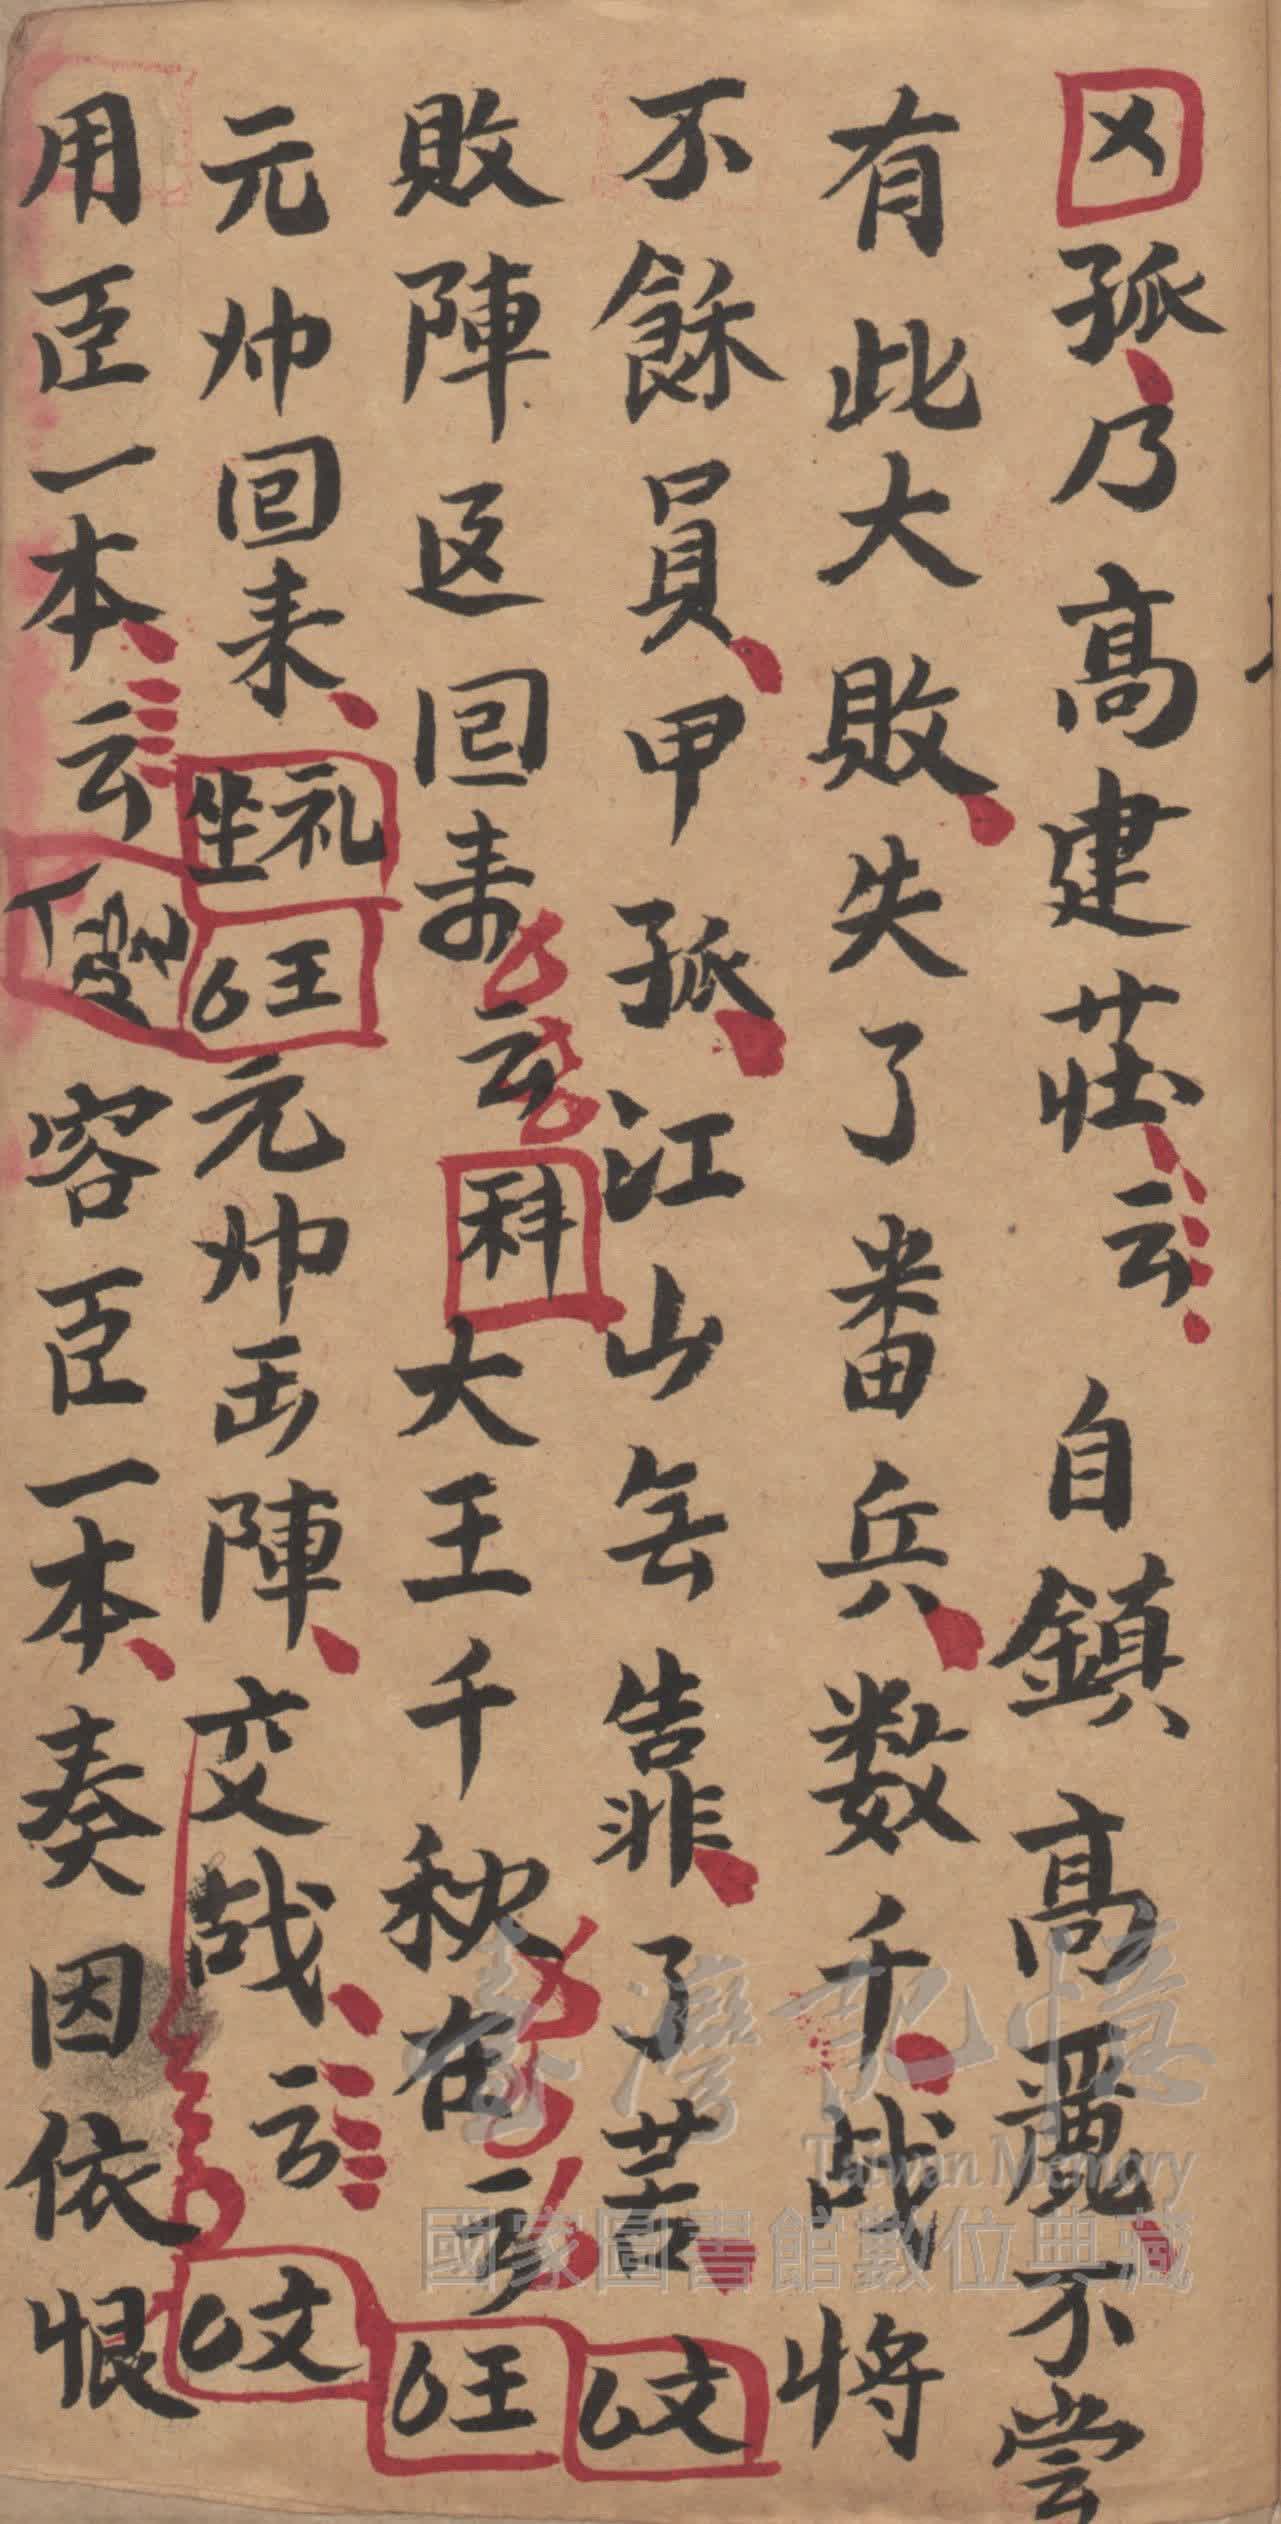 孤乃高建莊云自鎮高麗不嘗
有此大敗失了番兵数千战将
不餘員甲孤江山無告靠了苦 文
敗陣返回來云 科 大王千秋在云 王
元帅回来 礼坐 王 元帅出陣交战云 文
用臣一本云 容臣一本奏因依恨
臺灣記憶
Taiwan Memory
國家圖書館數位典藏